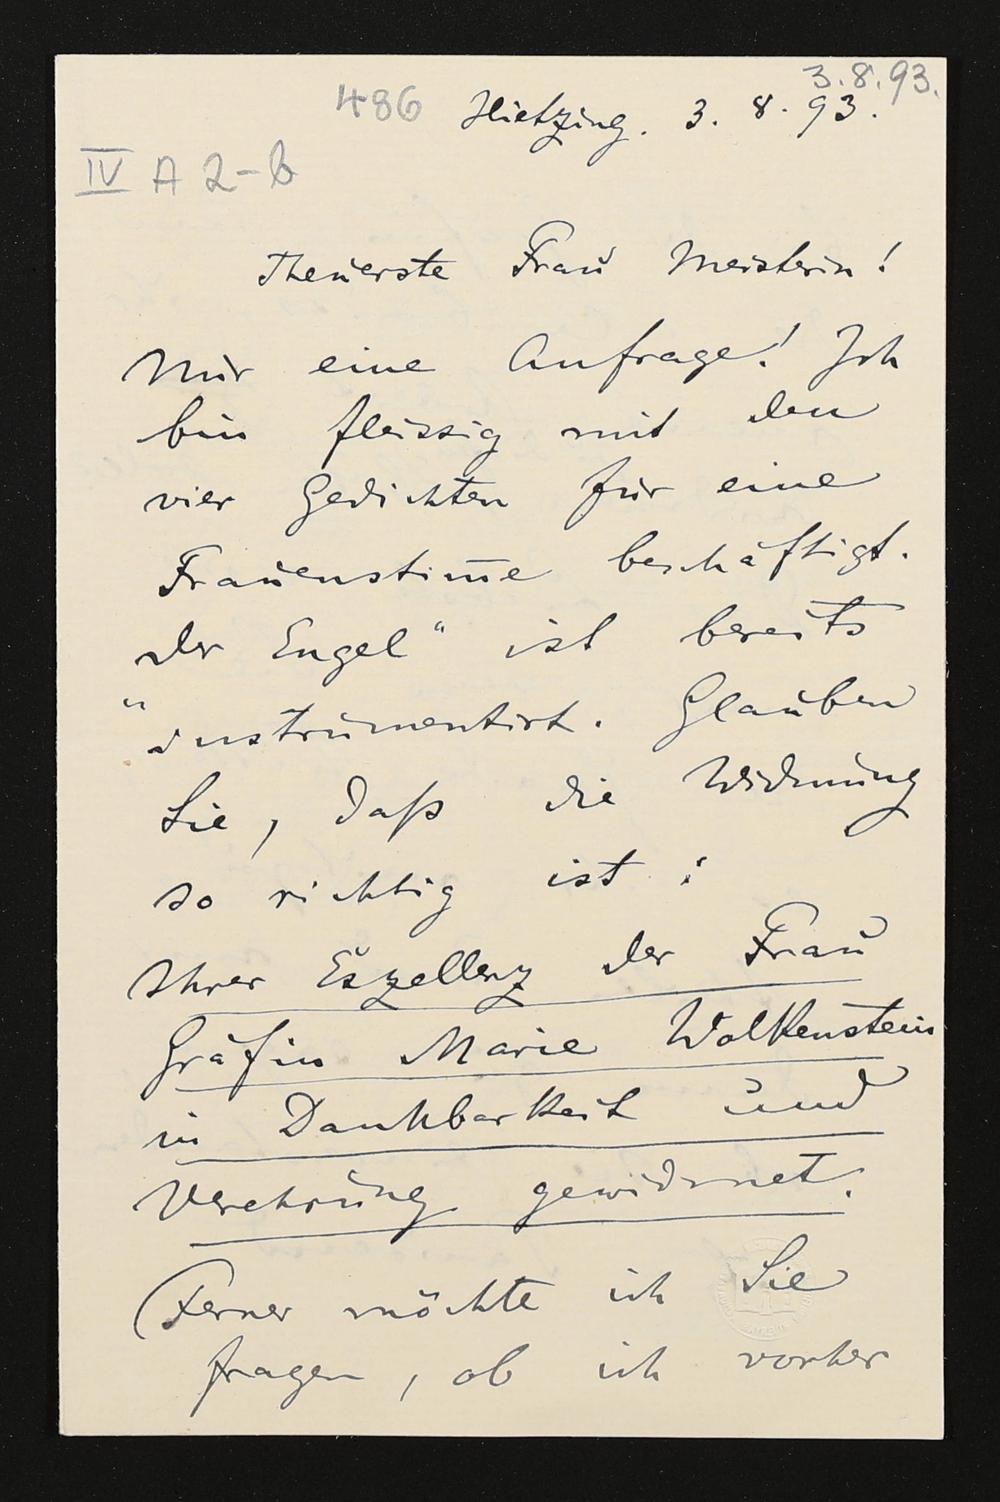 3.8.93.
486 Hietzing. 3. 8. 93.
IV A 2-b
Theuerste Frau Meisterin!
Nur eine Anfrage! Ich
bin fleissig mit den
vier Gedichten für eine
Frauenstim̅e beschäftigt.
Der Engel“ ist bereits
„instrumentirt. Glauben
Sie, daß die Widmung
so richtig ist:
Ihrer Exzellenz der Frau
Gräfin Marie Wolkenstein
in Dankbarkeit und
Verehrung gewidmet.
(Ferner möchte ich Sie
fragen, ob ich vorher